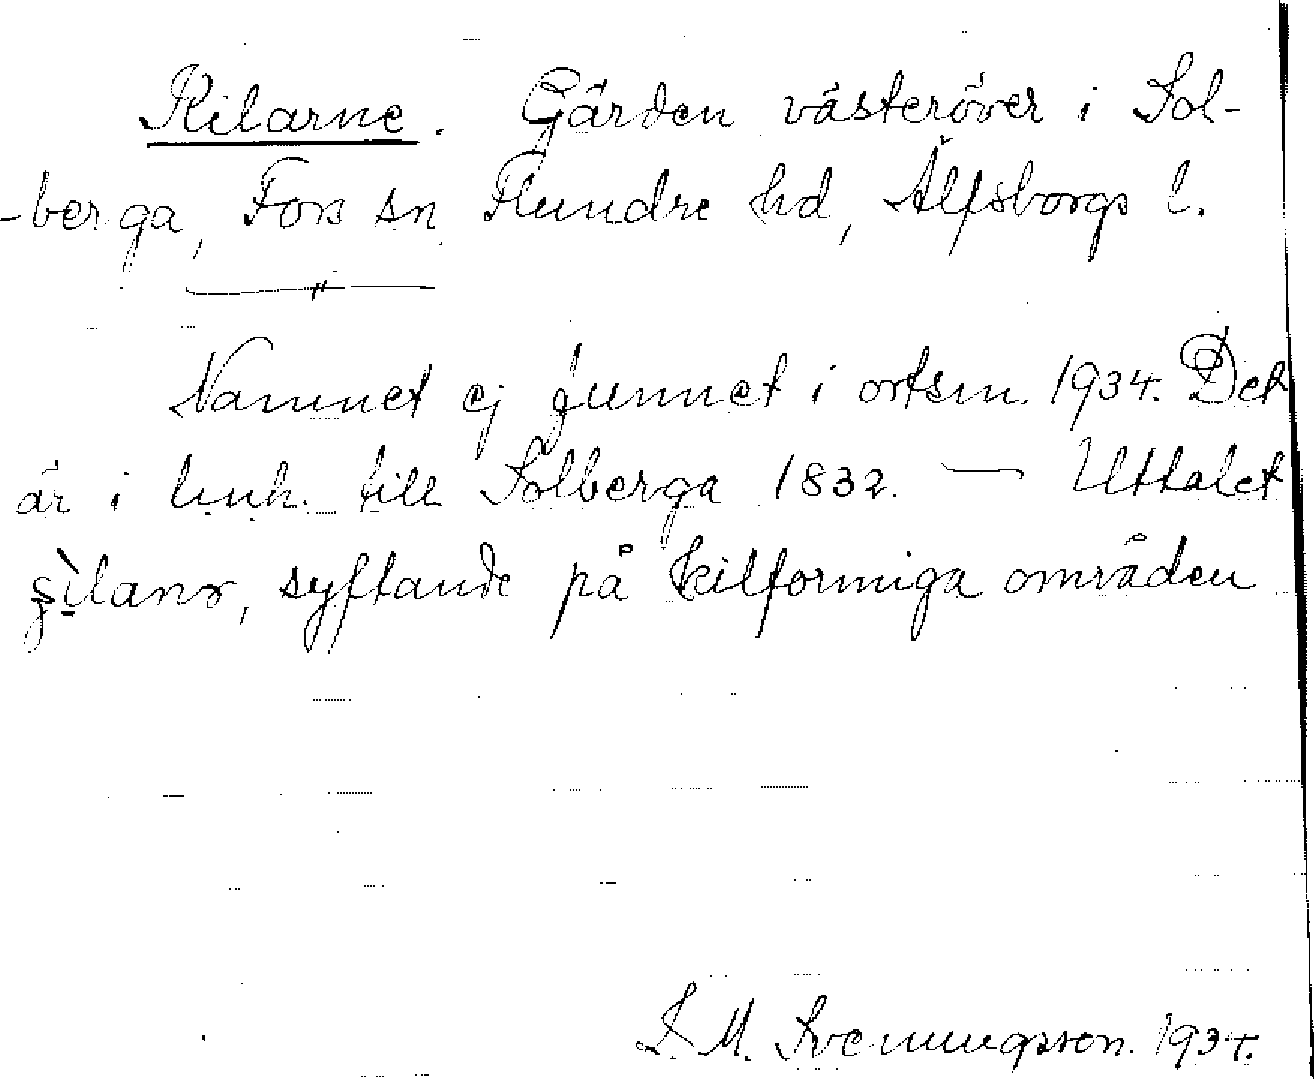 Kilarne. Gärden västeröver i Sol-
-berga, Fors sn Flundre hd, Älfsborgs l.
"
Namnet ej funnet i ortsn 1934. Det
är i bruk. till Solberga 1832. — Uttalet
, syftande på kilformiga områden
S. M. Svenungsson. 1934.